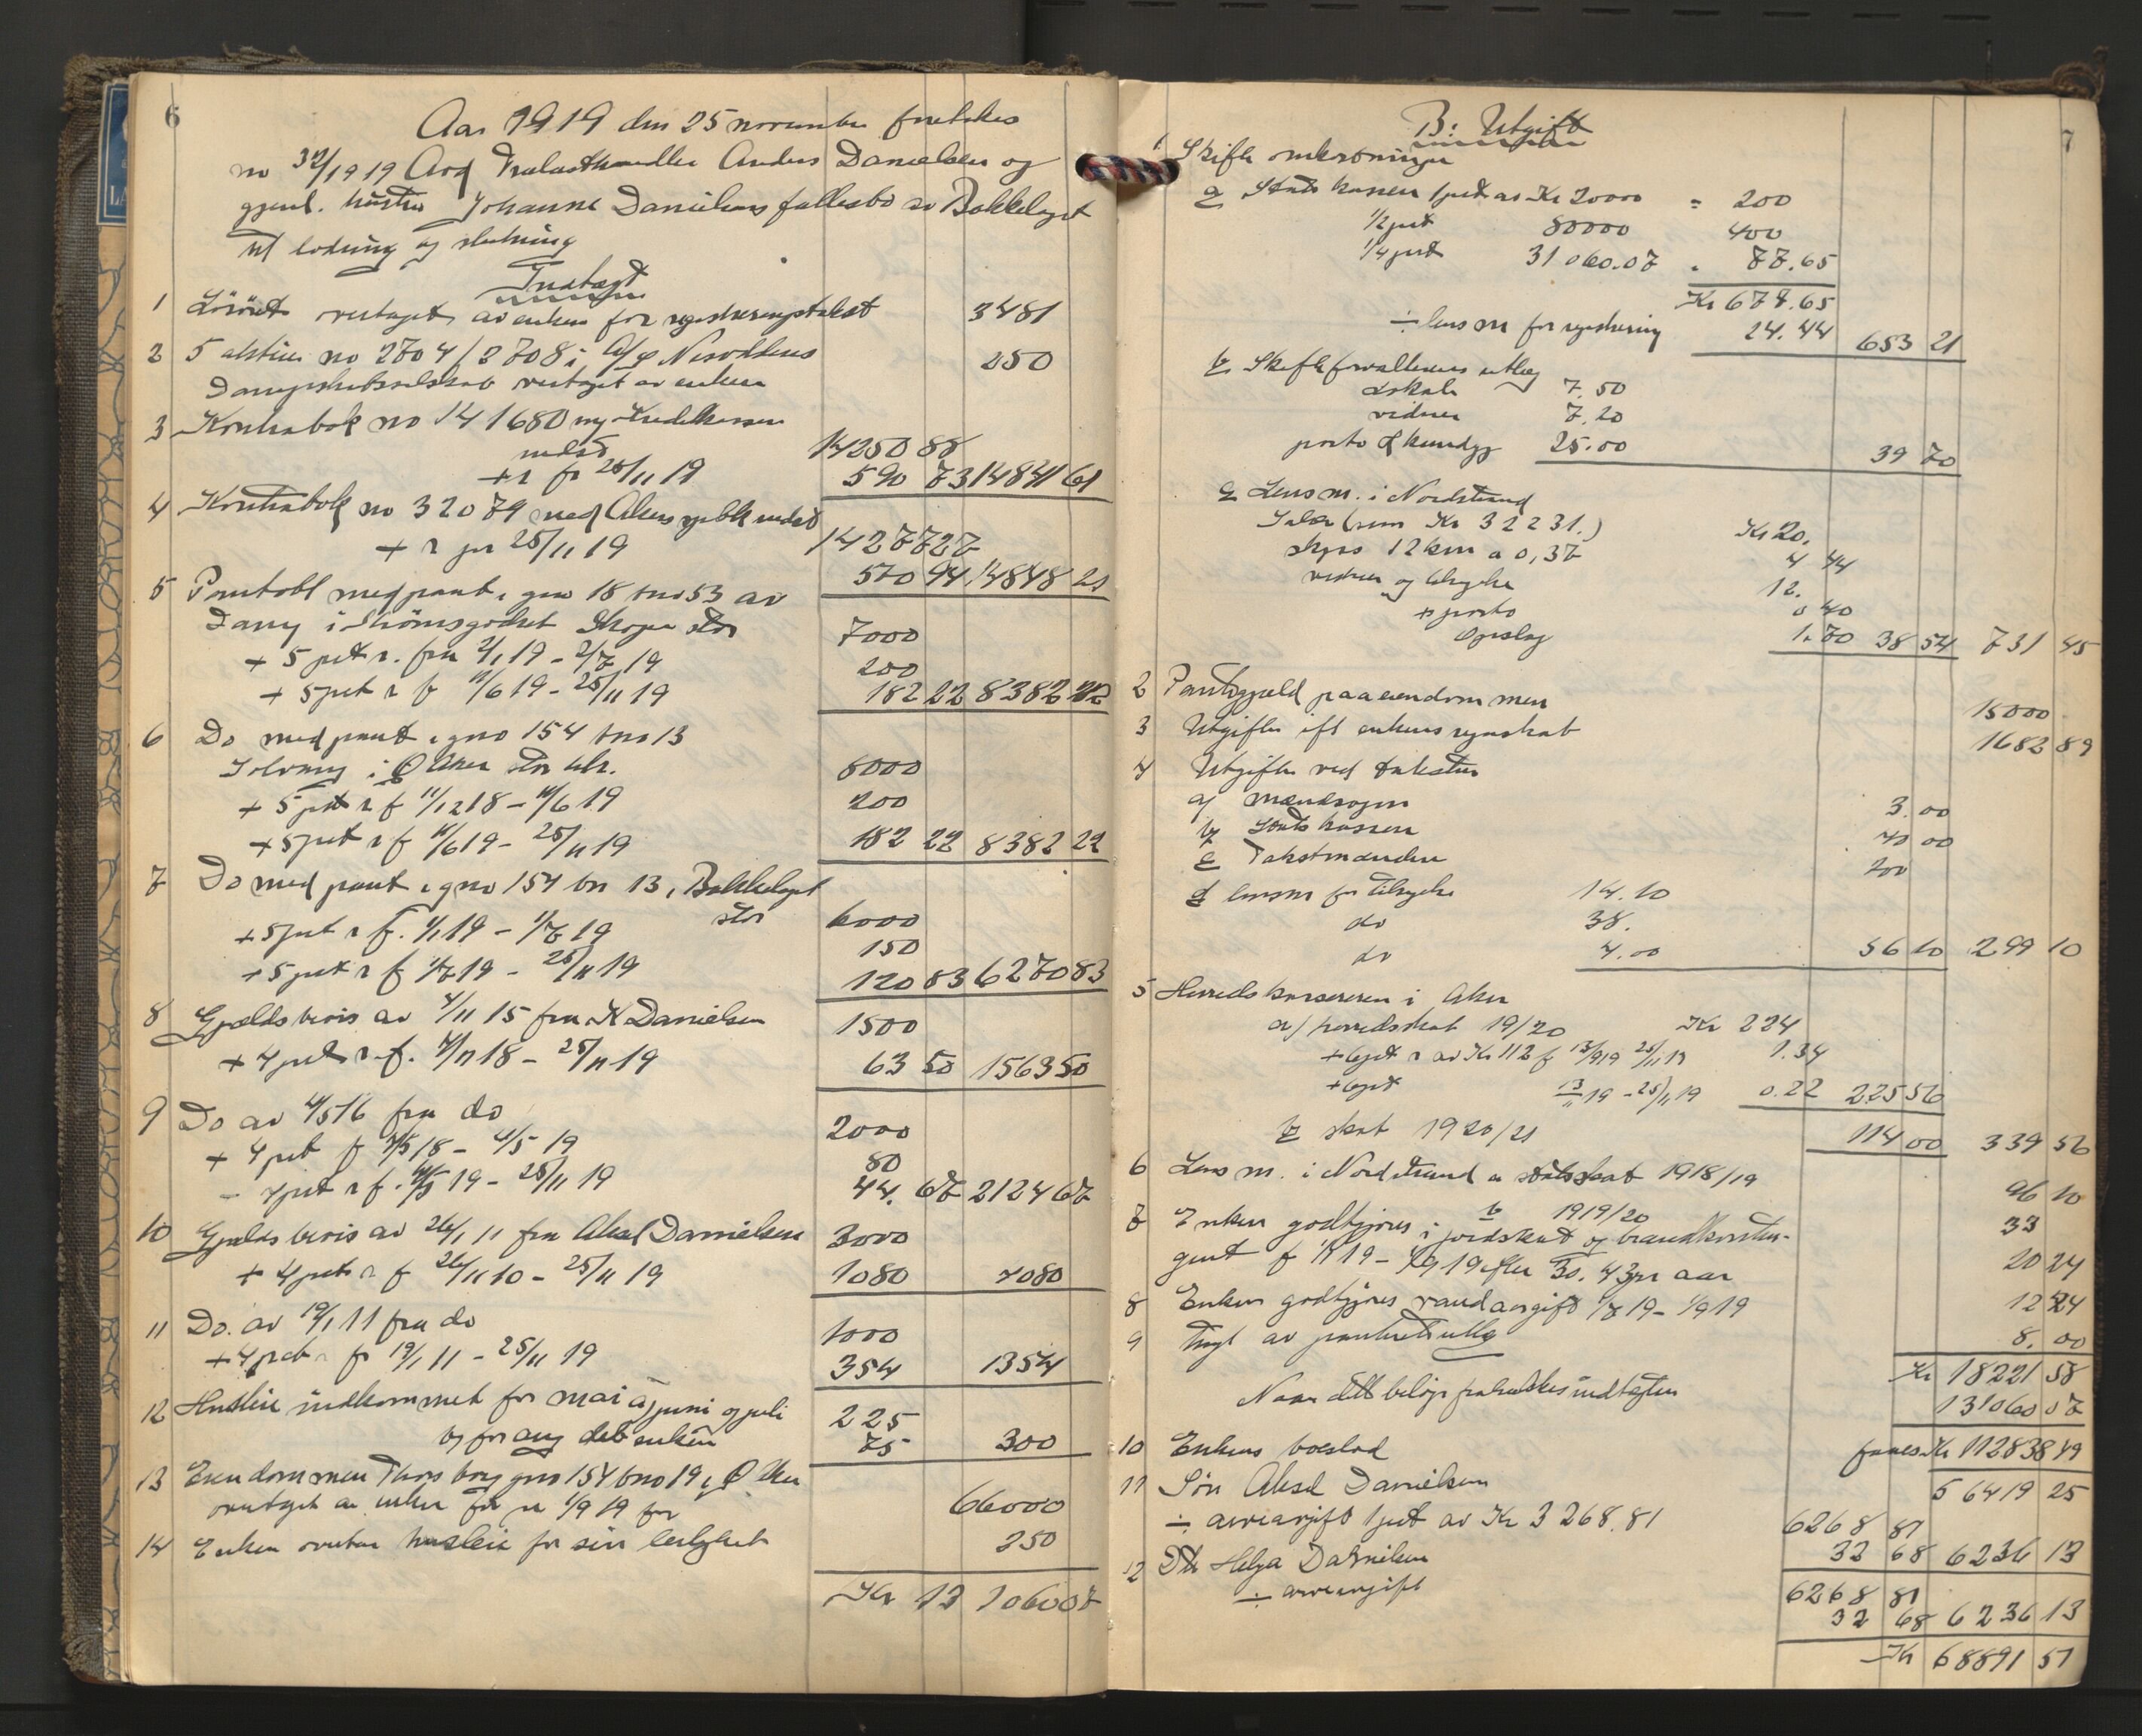 6
Aar 1919 den 25 november foretokes
no 32/1919 Avd Trælasthandler Anders Danielsen og
gjenl. hustru Johanne Danielsens fællesbo av Bækkelaget
til lodning og slutning
Indtægt
1 Lösöret overtaget av enken for registreringstakst 3481
2 5 aktier no 2704/2708 i A/S Nesoddens 250
Dampskibsselskab overtaget av enken
3 Kontrabok no 141680 Kreditkassen
indest 14250 88
+ r fr 25/11 19 590 73 14841 61
4 Kontrabok no 32079 med Akers spbk indest 14277 27
+ r pr 25/11 19 570 94 14848 21
5 Pantobl med pant i gno 18 bno 53 av
Dany i Strömsgodset Skoger stor 7000
+ 5 pct r. fra 2/1 19 - 2/7 19 200
+ 5 pct r f 11/6 19 - 25/11 19 182 22 8382 22
6 Do med pant i gno 154 bno 13
Solvang i Ø Aker stor kr. 8000
+ 5 pct r f 11/12 18 - 11/6 19 200
+ 5 pct r f 11/6 19 - 25/11 19 182 22 8382 22
7 Do med pant i gno 154 bn 13, Bækkelaget
stor 6000
+ 5 pct r f. 1/1 19 - 1/7 19 150
+ 5 pct r f 1/7 19 - 25/11 19 120 83 6270 83
8 Gjældsbevis av 4/11 15 fra K Danielsen 1500
+ 4 pct r. f. 4/11 18 - 25/11 19 63 50 1563 50
9 Do av 4/5 16 fra do 2000
+ 4 pct f 4/5 18 - 4/5 19 80
- 4 pct r f. 4/5 19 - 25/11 19 44. 67 2124 67
10 Gjældsbevis av 26/1 11 fra Aksel Danielsen 3000
+ 4 pct r f 26/11 10 - 25/11 19 1080 4080
11 Do. av 19/1 11 fra do 1000
+ 4 pct r fr 19/1 11 - 25/11 19 354 1354
12 Husleie indkommet for mai a juni og juli 225
og for aug deb enken 75 300
13 Eiendommen Thorsborg gno 154 bno 19 i Ø. Aker
overtaget av enken fr 1/9 19 for 66000
14 Enken overtar husleie for sin leilighet 250
Kr 131060 07
7
B: Utgift
1 Skifteomkostninger
a Statskassen 1 pct av Kr 20000 = 200
1/2 pct 80000 400
1/4 pct 31060.07 " 77.65
Kr 677.65
÷ lensm for registrering 24.44 653 21
b Skifteforvalterens utlæg
7.50
vidner 7.20
porto & kundgj 25.00 39 70
c Lensm. i Nordstrand
Salær (sum Kr 32231.) Kr 20.
skyss 12 km a 0,37 4 44
vidner og tilsigelse 12.
+ porto 0 40
Opslag 1.70 38 54 731 45
2 Pantegjæld paa eiendommen 15000
3 Utgifter ift enkens regnskab 1682 89
4 Utgifter ved taksten
a) 3.00
b Statskassen 40 00
c Takstmændene 200
d lensm for tilsigelse 14.10
do 38.
do 4.00 56 10 299 10
5 Herredskassereren i Aker
a) herredsskat 19/20 Kr 224
+ 6 pct r av Kr 112 f 13/9 19 25/11 19 1.34
+ 6 pct 13/11 19 - 25/11 19 0.22 225 56
b skat 1920/21 114 00 339 56
6 Lensm. i Nordstrand a statsskat 1918/19 96 10
b 1919/20 33
7 Enken godtgjöres i jordskat og brandkontin-
gent f 1/1 19 - 1/9 19 efter 30.43 pr aar 20 24
8 Enken godtgjöres vandavgift 1/7 19 - 1/9 19 12 24
9 Tingl av 8.00
Kr 18221 58
Naar dette belöp fratrækkes indtægten 131060 07
faaes Kr 112838 49
10 Enkens boeslod 56419 25
11 Sön Aksel Danielsen 6268 81
÷ arveavgift 1 pct av Kr 3268.81 32 68 6236 13
12 Dtr Helga Danielsen 6268 81
÷ arveavgift 32 68 6236 13
Kr 68891 51